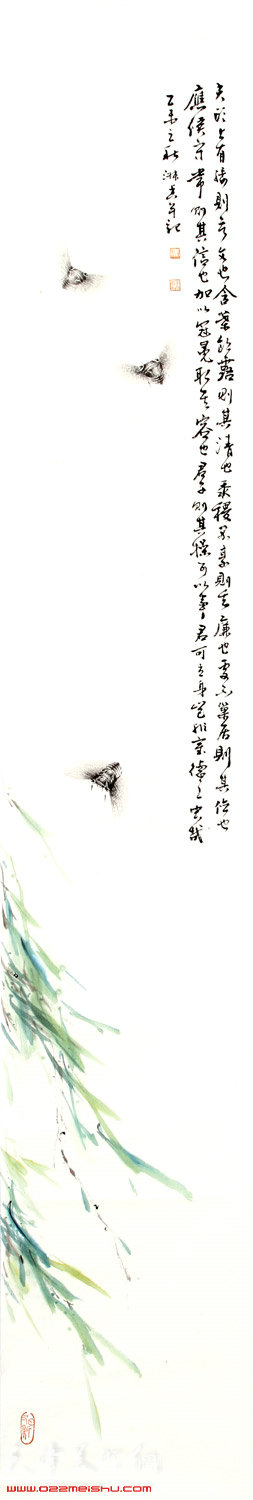 夫頭上有緌則其文也含氣飲露則其清也黍稷不享則其廉也處不巢居則其儉也
應候守常則其信也加以冠冕取其容也君子則其操可以事君可立身豈非至德之虫哉
乙未之秋 並記
www.022meishu.com